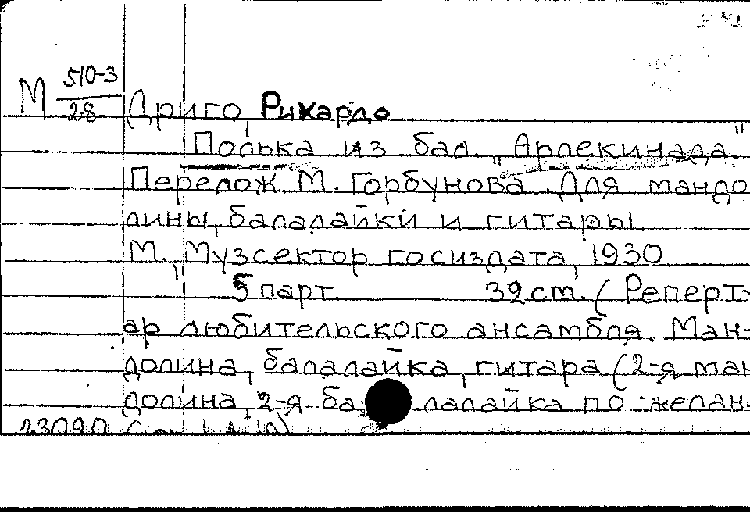 М 510-3
28
Дриго, Рикардо
Полька из бал. "Арлекинада"
Перелож. М. Горбунова. Для мандо
лины, балалайки и гитары
М., Музсектор госиздата, 1930
5 парт. 32 cm. (Реперт-
ар любительского ансамбля. Ман-
долина, балалайка, гитара (2-я ман
долина, 2-я ба лалайка по желан-
23090